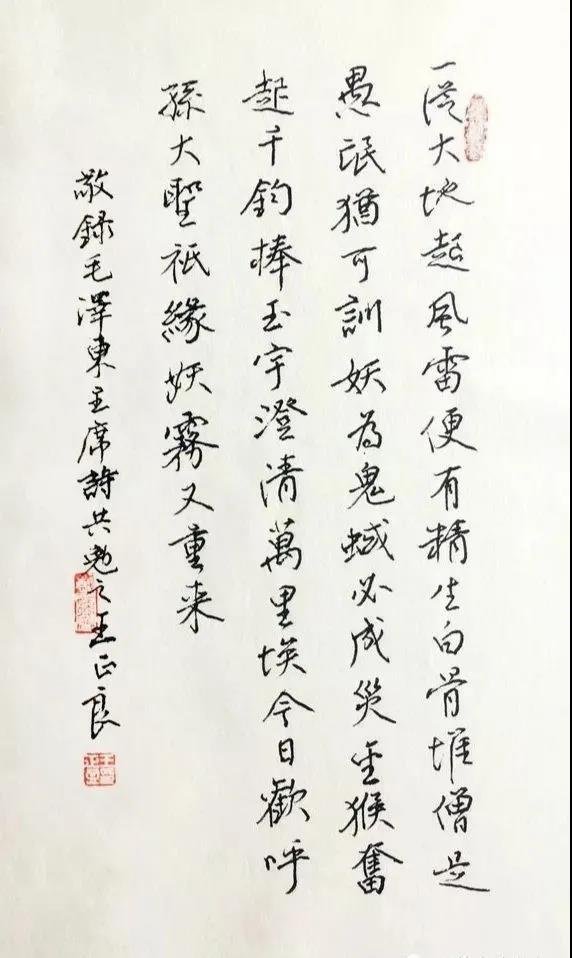 一從大地起風雷便有精生白骨堆僧是
愚氓猶可訓妖為鬼蜮必成災金猴奮
起千鈞棒玉宇澄清萬里埃今日歡呼
孫大聖祇緣妖霧又重来
敬録毛澤東主席詩共勉之王正良